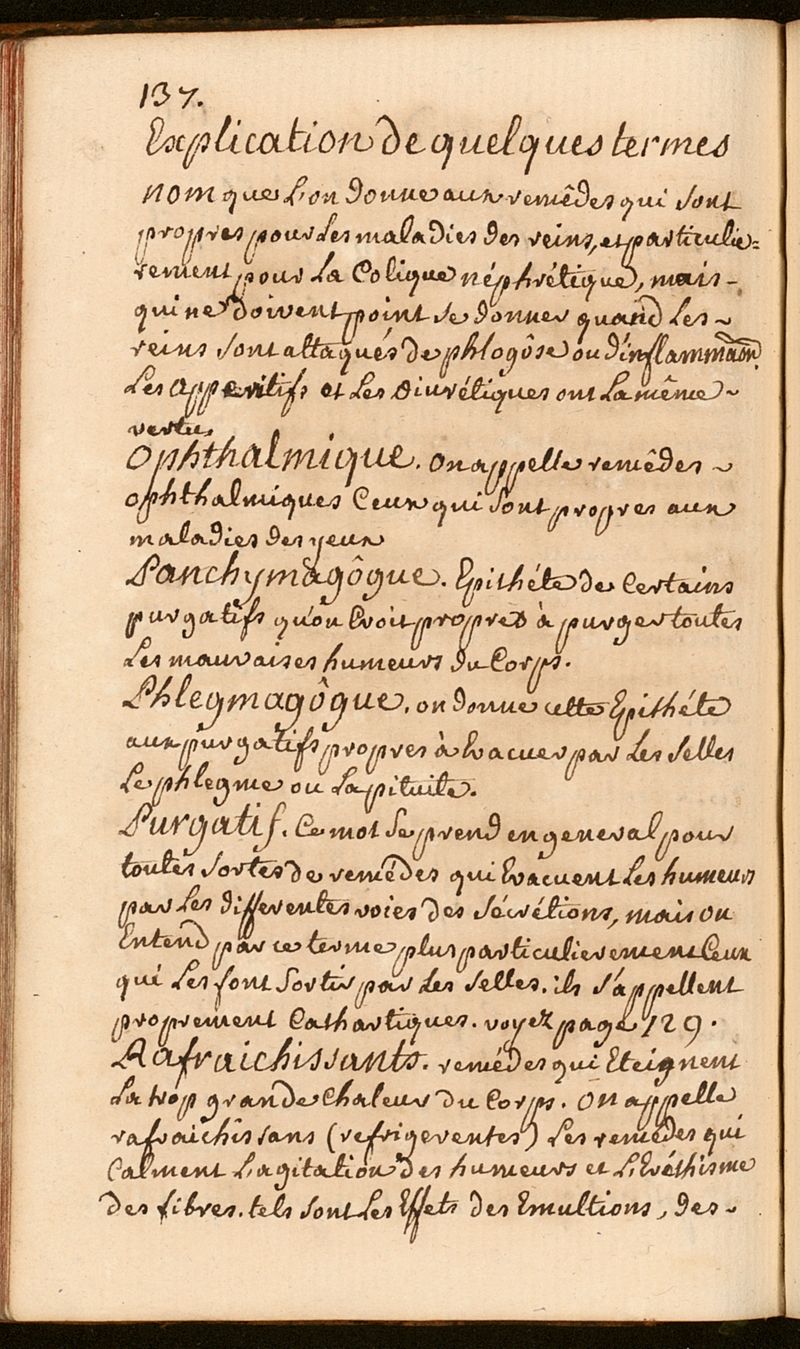 137.
Explication de quelques termes
nom que L'on donne aux remêdes qui sont
propres pour Les maladies des reins, et particulie=
rement pour La Colique néphrétique, mais -
qui ne doivent point se donner quand Les ~
reins sont attaqués de phlogôse ou d'inflammãon.
Les Apperitifs et Les Diurétiques ont La même ~
vertu.
Ophthalmique. On appelle remêdes ~
ophthalmiques Ceux qui sont propres aux
maladies des yeux
Panchymagôgue. Epithéte de Certains
purgatifs qu'on Croit propres à purger toutes
Les mauvaises humeurs du Corps.
Phlegmagôgue. on donne cette Epithéte
aux purgatifs propres à Evacuer par Les selles
Le phlegme ou La pituite.
Purgatif. Ce mot se prend en general pour
toutes sortes de remêdes qui Evacuent Les humeurs
par Les differentes voies des sécrétions, mais on
Entend par ce terme plus particulierement Ceux
qui Les font sortir par Les selles. ils s'appellent
proprement Cathartiques. voyez page 129.
Rafraichissants. remédes qui Eteignent
La trop grande Chaleur du Corps. On appelle
rafraichissans (refrigerentes) Les remêdes qui
Calment L'agitation des humeurs et L'Eréthisme
des fibres. tels sont Les Effets des Emultions, des ~